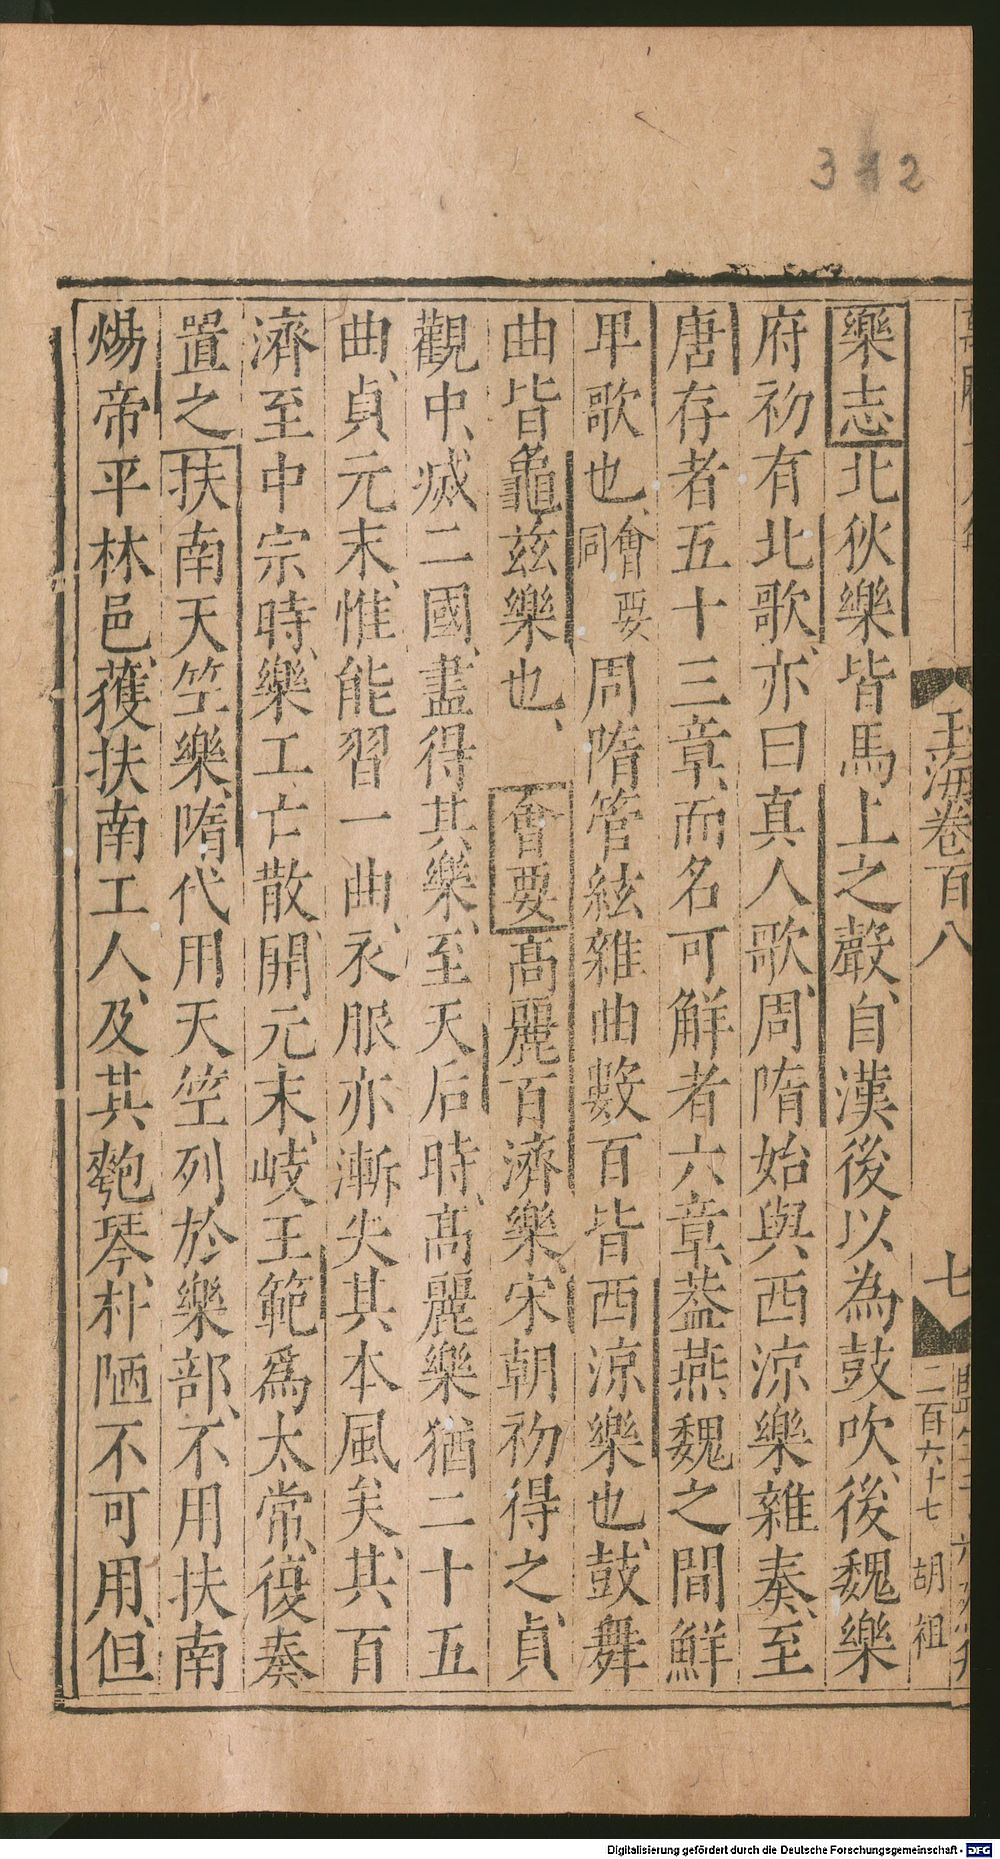 312
玉海卷百八
七
二百六十七
胡祖
樂志北狄樂皆馬上之聲、自漢後以為鼓吹、後魏樂
府初有北歌、亦曰真人歌、周隋始與西涼樂雜奏、至
唐存者五十三章、而名可解者六章、蓋燕魏之間鮮
卑歌也、會要同周隋管絃雜曲數百皆西涼樂也、鼓舞
曲皆龜兹樂也、會要髙麗百濟樂、宋朝初得之、貞
觀中、滅二國、盡得其樂、至天后時、髙麗樂猶二十五
曲、貞元末、惟能習一曲、衣服亦漸失其本風矣、其百
濟至中宗時、樂工亡散、開元末、岐王範爲太常、復奏
置之扶南天竺樂、隋代用天竺列於樂部、不用扶南
煬帝平林邑、獲扶南工人、及其匏琴、朴陋不可用、但
Digitalisierung gefördert durch die Deutsche Forschungsgemeinschaft - DFG